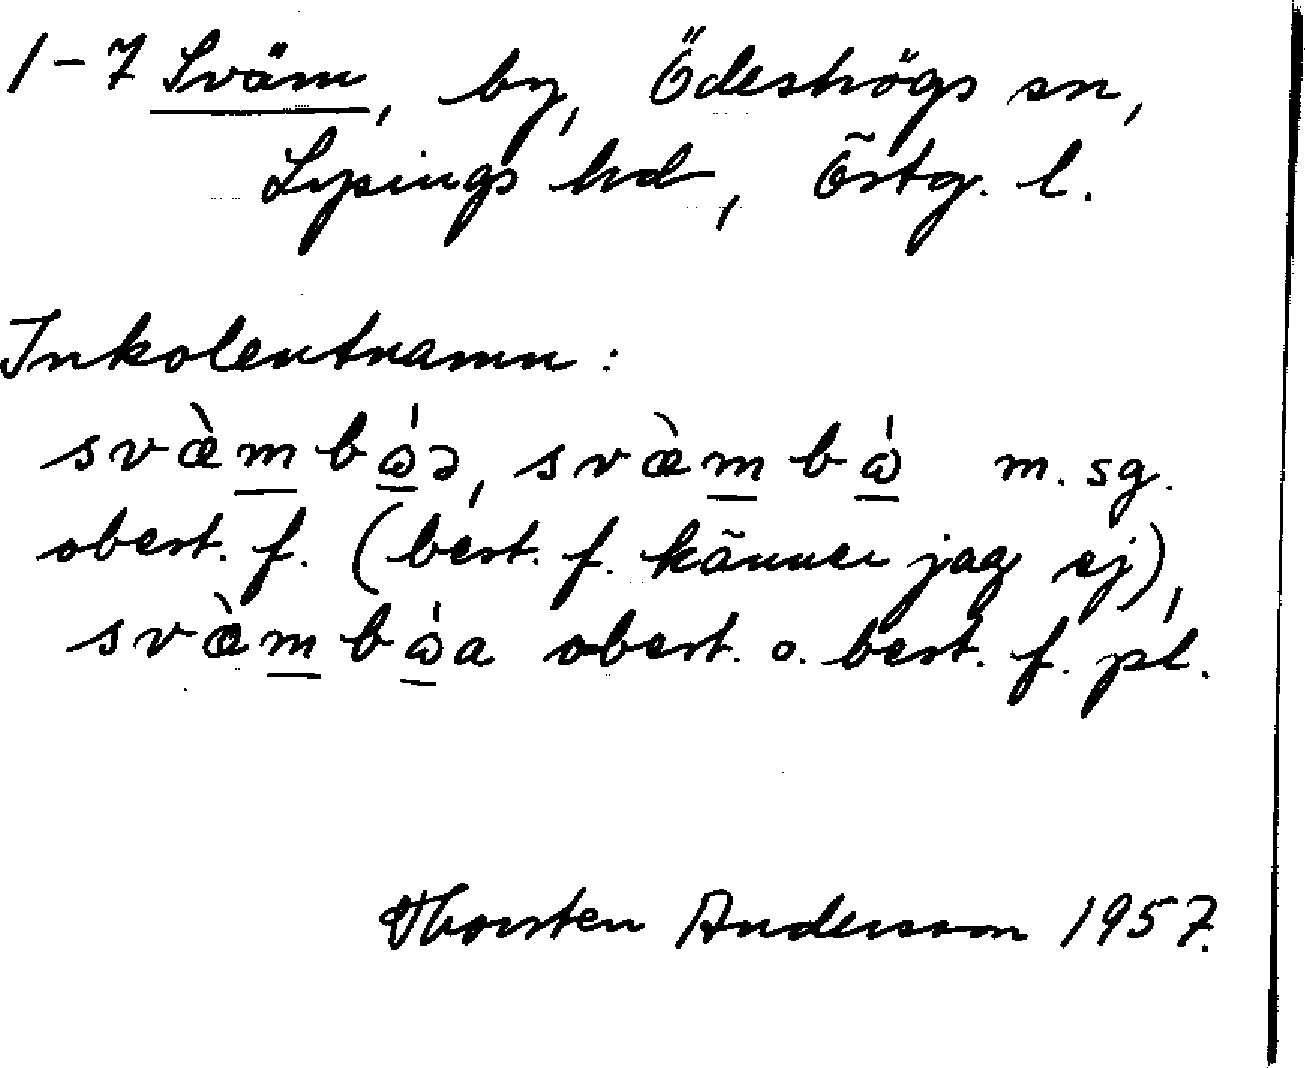 1-7 Sväm, by, Ödeshögs sn,
Lysings hd, Östg. l.
Inkolentnamn:
svæ̀m̲bώ̲ə, svæ̀m̲bώ̲ m. sg.
obest. f. (best. f. känner jag ej),
svæ̀m̲bώ̲a obest. o. best. f. pl.
Thorsten Andersson 1957.